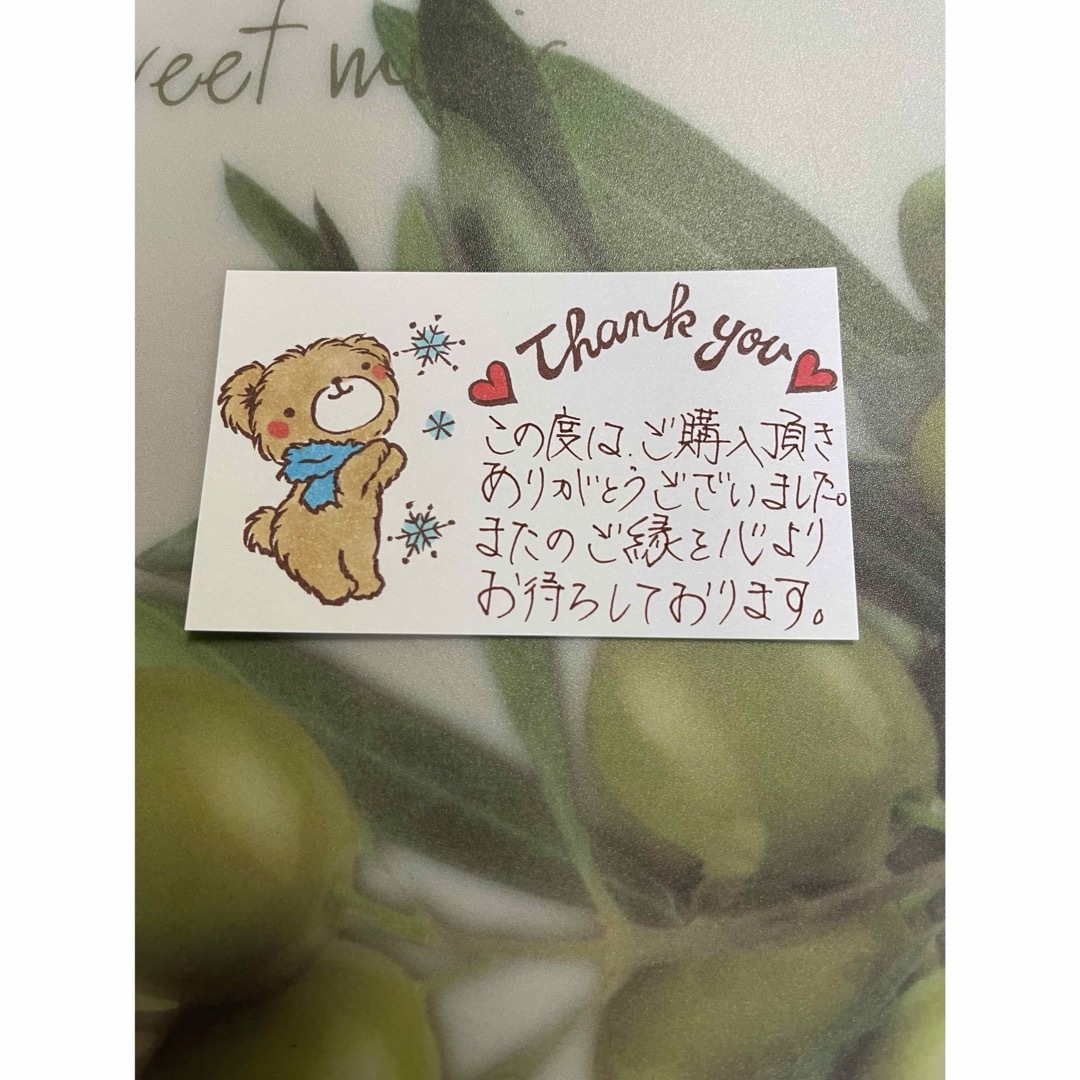 Thank you
この度は、ご購入頂き
ありがとうございました。
またのご縁を心より
お待ちしております。